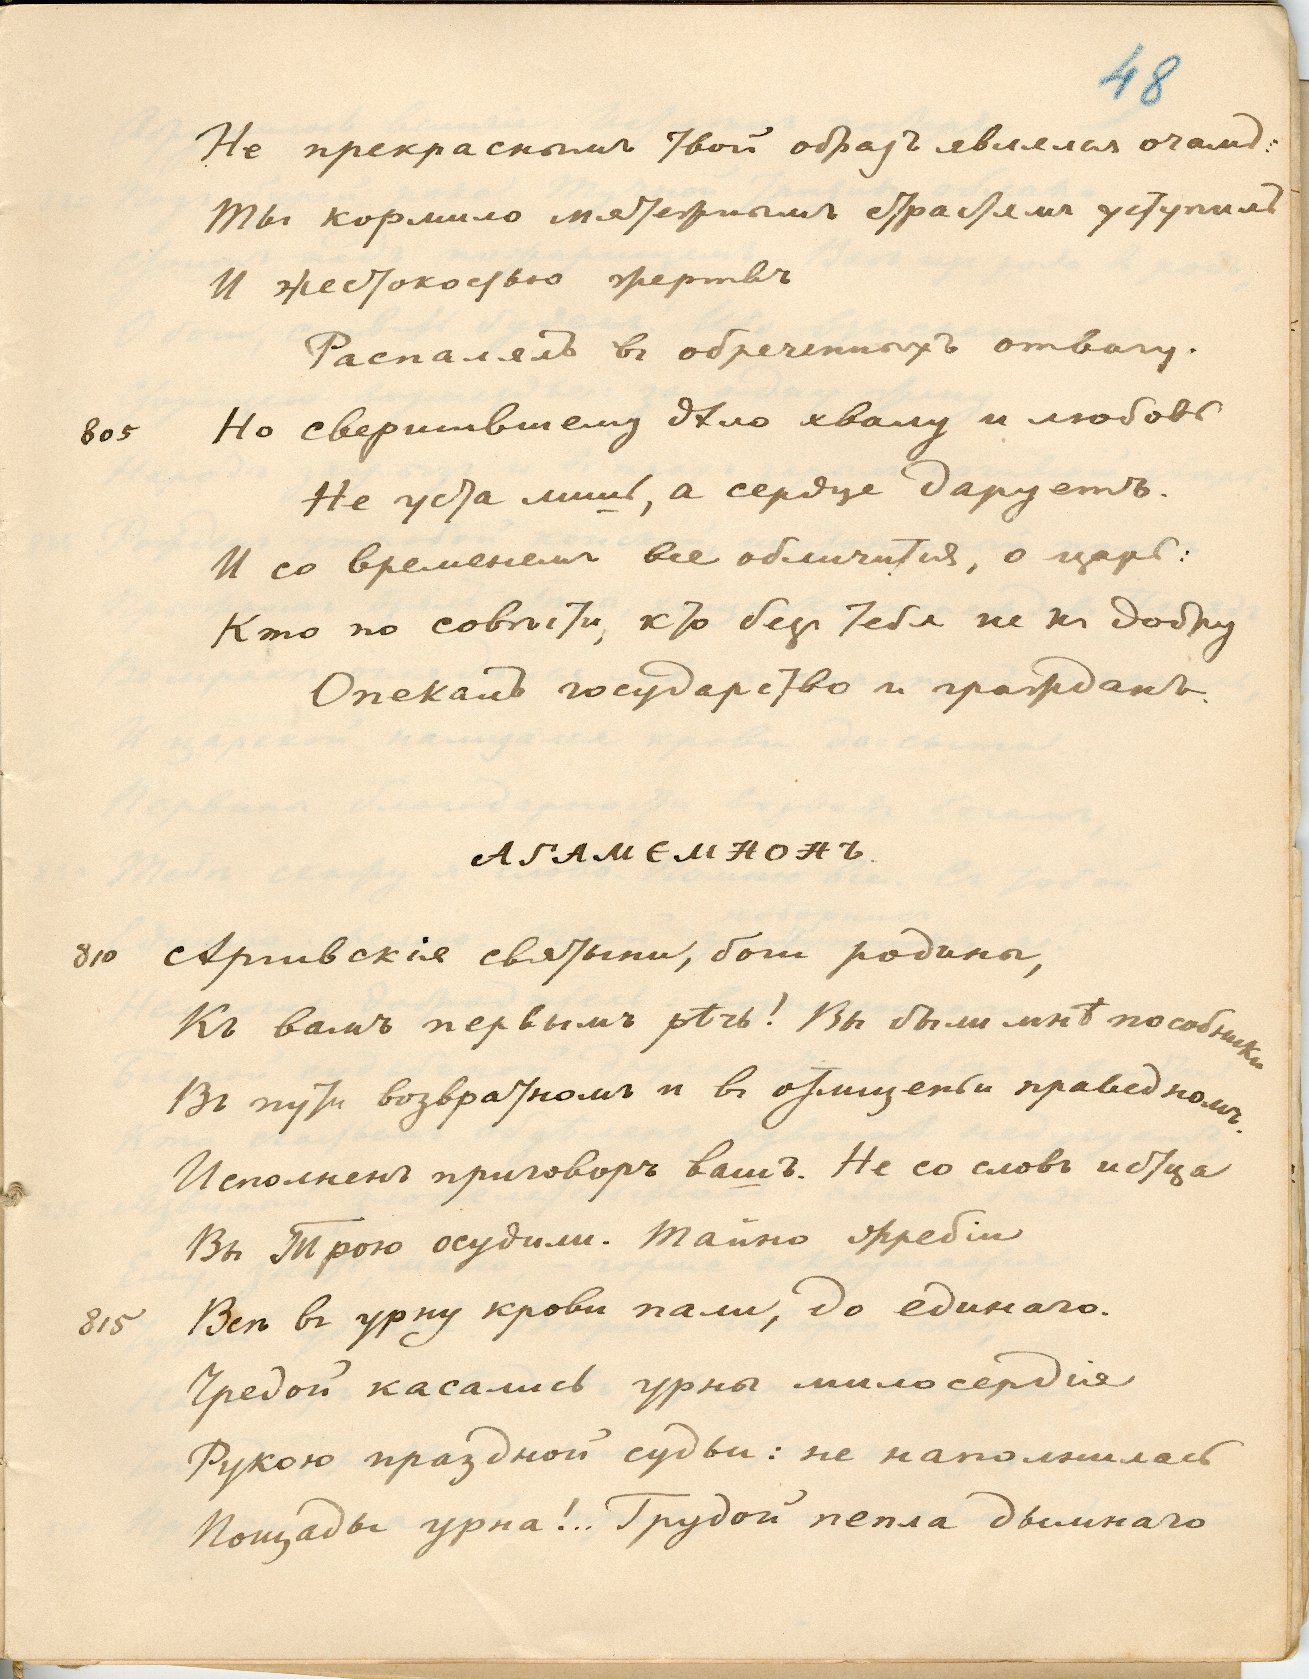 48
Не прекраснымъ твой образъ являлся очамъ:
Ты кормило мятежнымъ страстямъ уступилъ
И жестокостью жертвъ
Распалялъ въ обреченныхъ отвагу.
805 Но свершившему дѣло хвалу и любовь
Не уста лишь, а сердце даруетъ.
И со временемъ все обличится, о царь:
Кто по совѣсти, кто безъ тебя не къ добру
Опекалъ государство и гражданъ.
АГАМЕМНОНЪ.
810 Аргивскія святыни, боги родины,
Къ вамъ первымъ рѣчь! Вы были мнѣ пособники
Въ пути возвратномъ и въ отмщеньи праведномъ.
Исполненъ приговоръ вашъ. Не со словъ истца
Вы Трою осудили. Тайно жребіи
815 Всѣ въ урну крови пали, до единаго.
Чредой касались урны милосердія
Рукою праздной судьи: не наполнилась
Пощады урна!.. Грудой пепла дымнаго